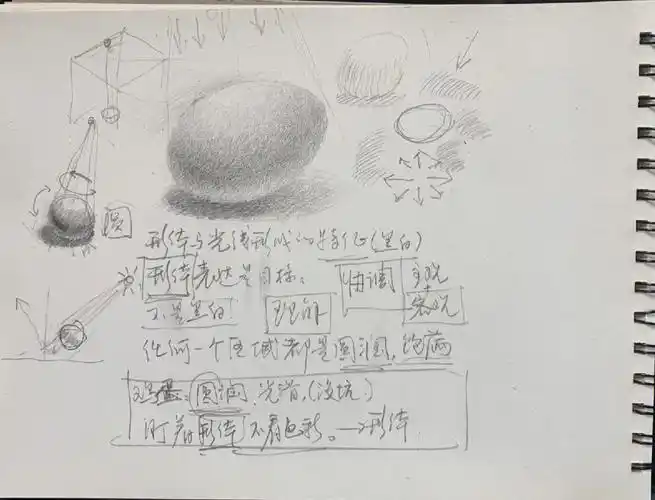 圆
形体与光线形成的特征(黑白)
形体表达是目标。 协调 主观
不是黑白! 理解 客观
任何一个区域都是圆润,饱满
鸡蛋:圆润,光滑,(没坑)
形体 不看色彩。→形体